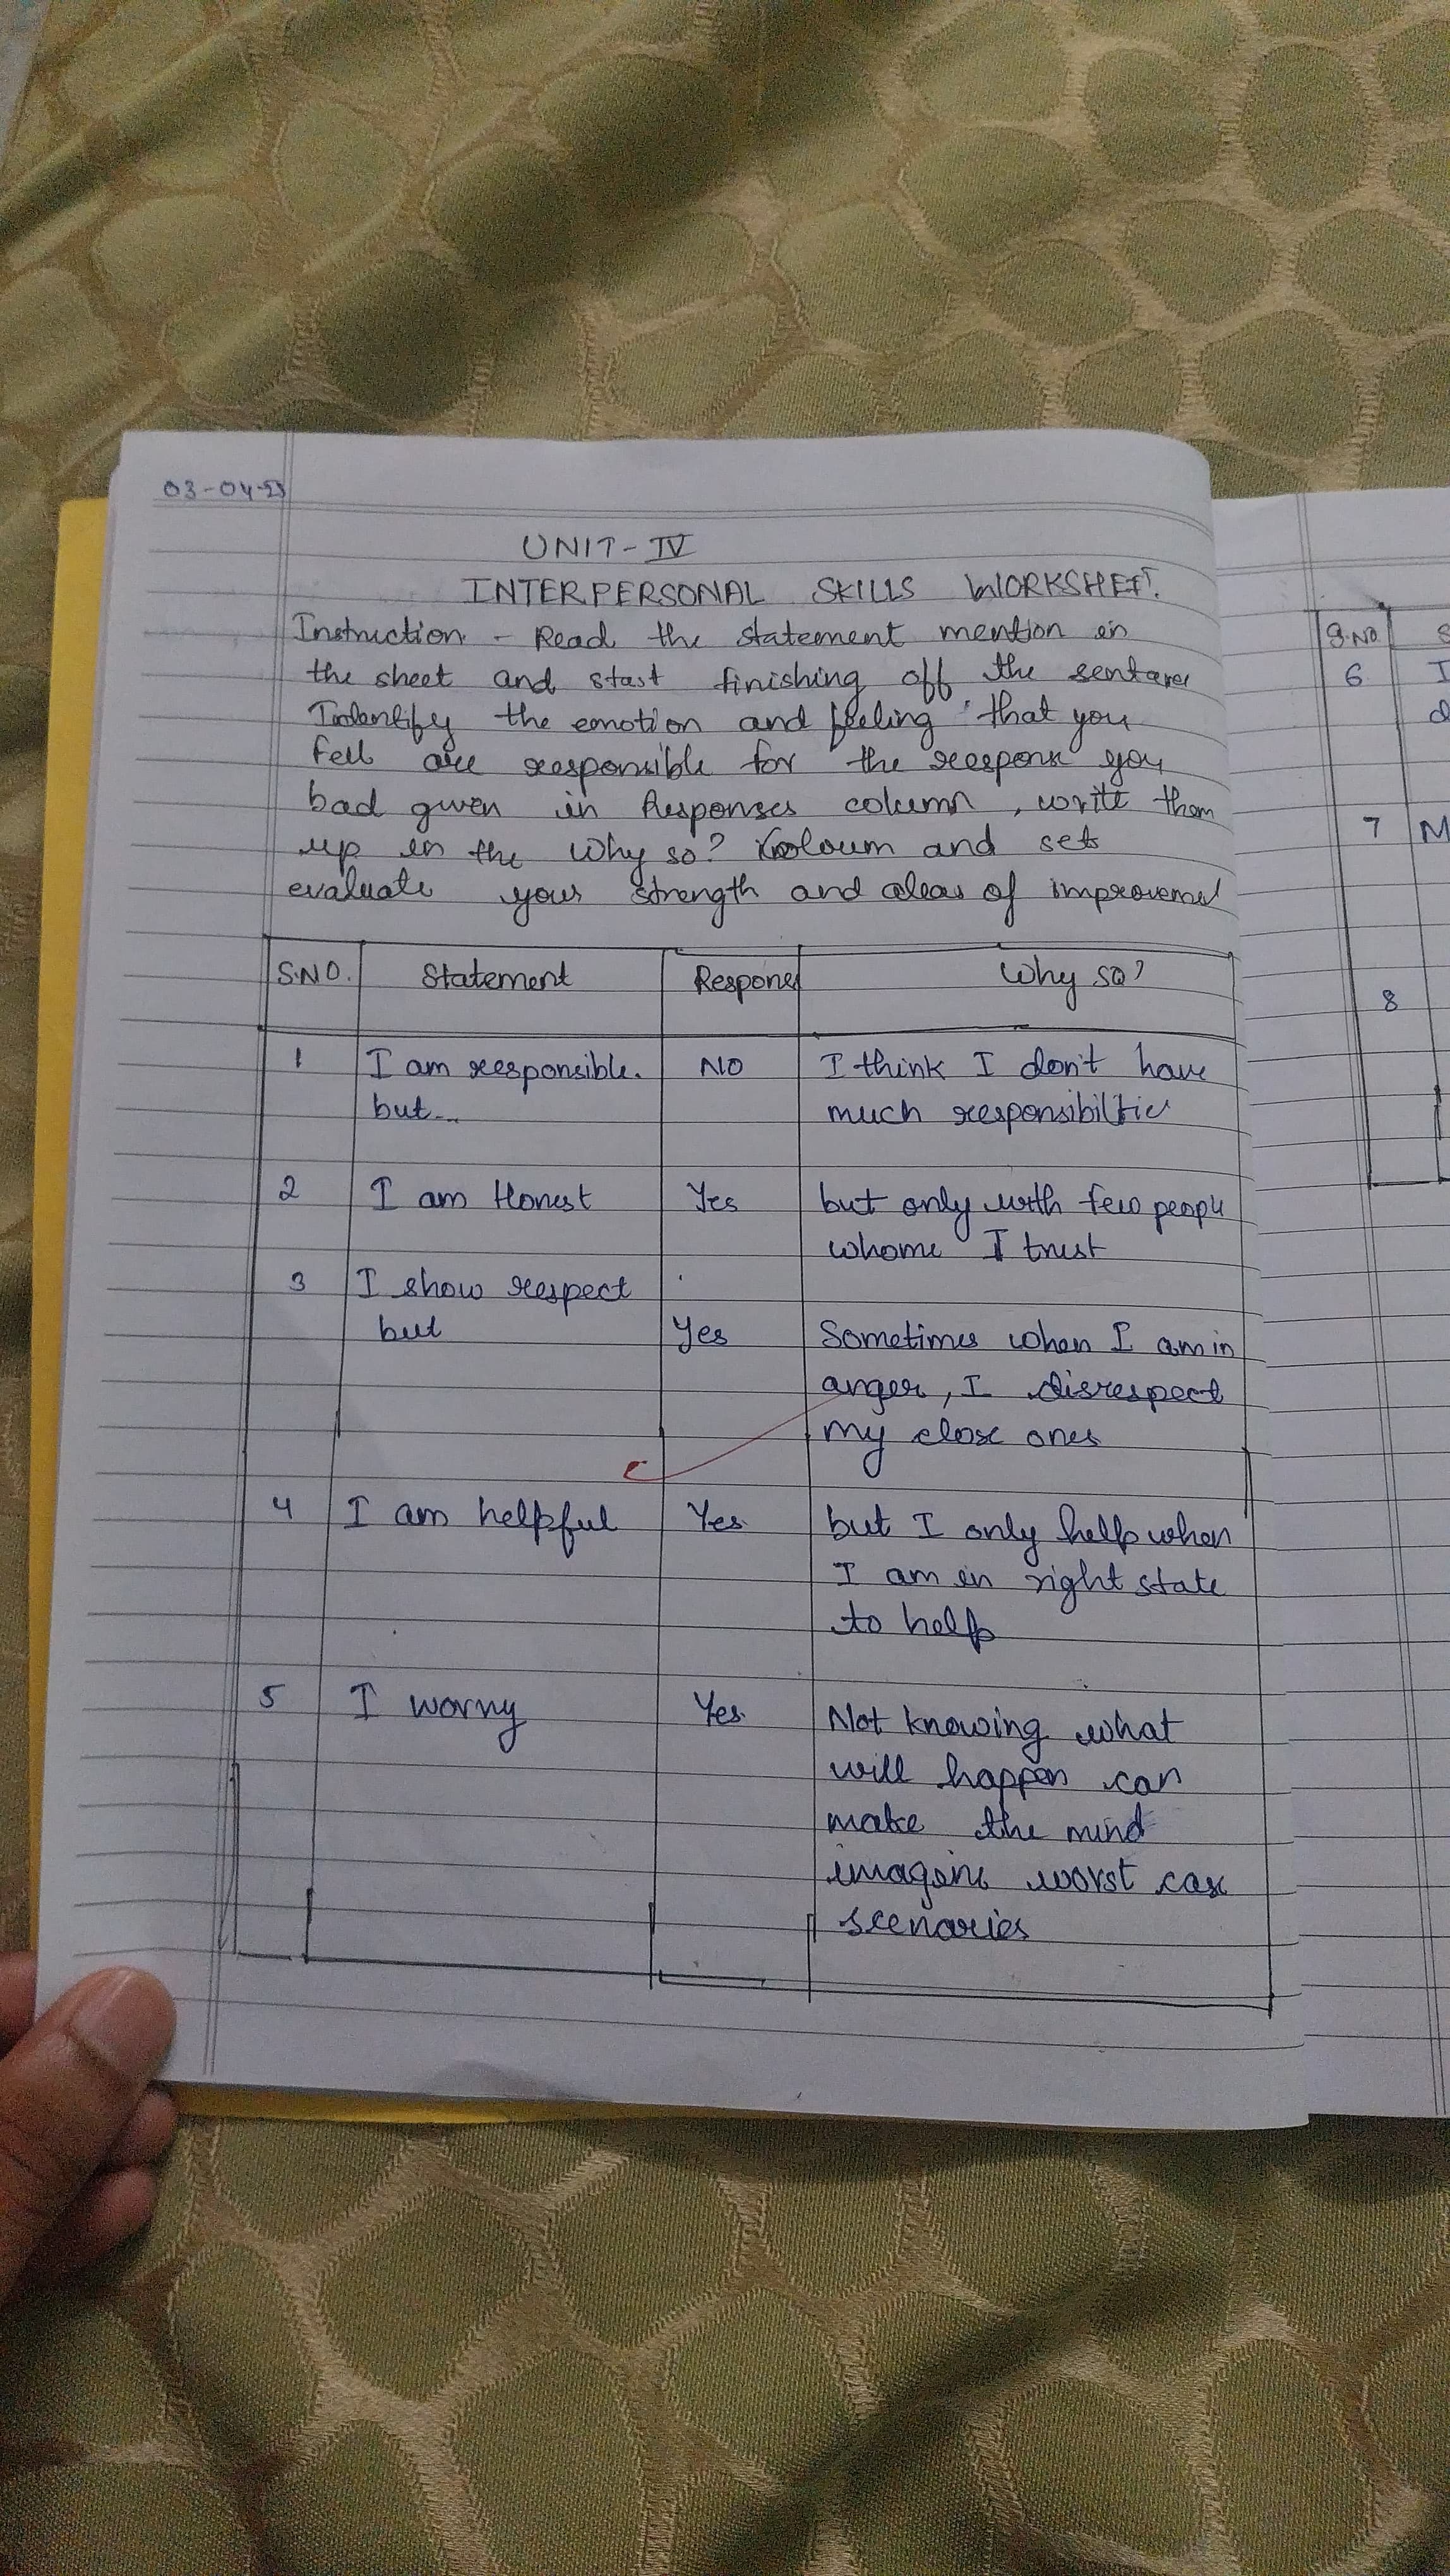 03-04-25
UNIT-IV
INTERPERSONAL SKILLS WORKSHEET.
Instruction - Read the statement mention in
the sheet and start finishing off the
the emotion and feeling that you
fell are responsible for the you
bad given in Responses column, write them
up in the Why so? and
evaluate your strength and of
S.NO. Statement Why so?
1 I am responsible. NO I think I don't have
but... much
2 I am Honest Yes but only with few
whome I trust
3 I show respect
but Yes Sometimes when I am in
anger, I disrespect
my close ones
4 I am helpful Yes. but I only help when
I am in right state
to help
5 I worry Yes. Not knowing what
will happen can
make the mind
worst case
scenaries
S.NO.
6 I
7 M
8